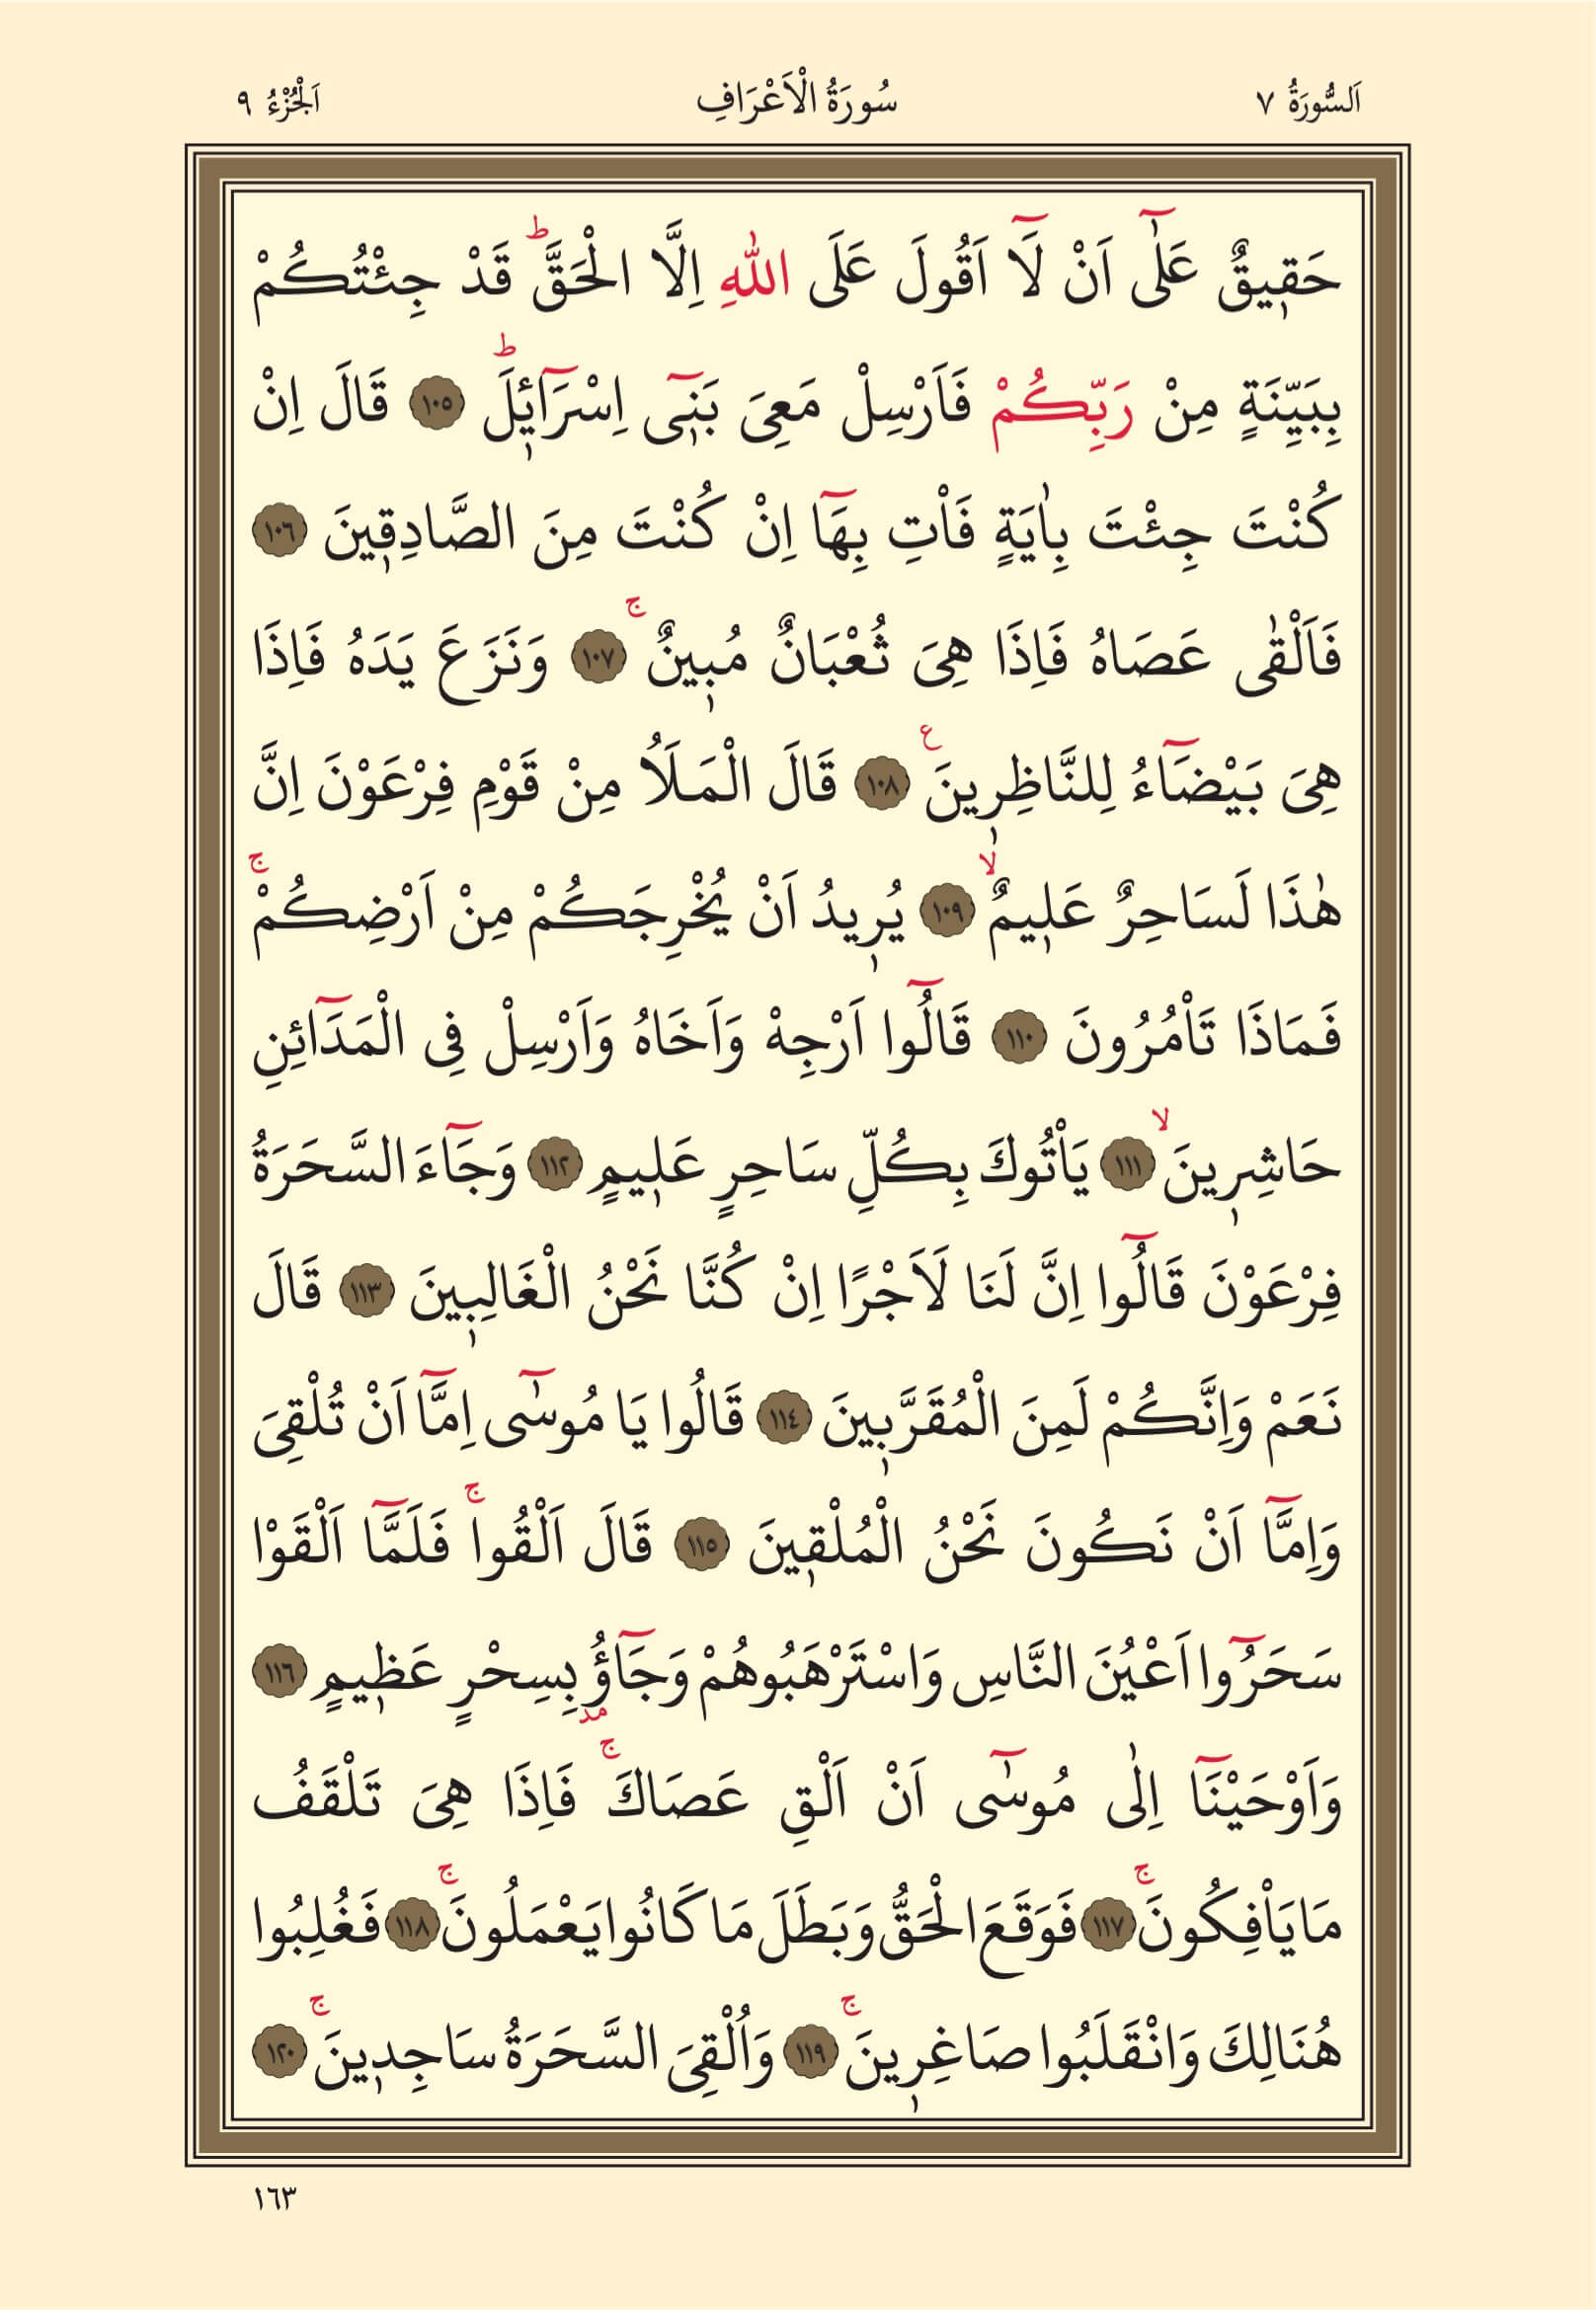 اَلسُّورَةُ ٧ سُورَةُ الْاَعْرَافِ اَلْجُزْءُ ٩
حَقٖيقٌ عَلٰٓى اَنْ لَٓا اَقُولَ عَلَى اللّٰهِ اِلَّا الْحَقَّؕ قَدْ جِئْتُكُمْ
بِبَيِّنَةٍ مِنْ رَبِّكُمْ فَاَرْسِلْ مَعِىَ بَنٖٓى اِسْرَٓائٖلَؕ ١٠٥ قَالَ اِنْ
كُنْتَ جِئْتَ بِاٰيَةٍ فَاْتِ بِهَٓا اِنْ كُنْتَ مِنَ الصَّادِقٖينَ ١٠٦
فَاَلْقٰى عَصَاهُ فَاِذَا هِىَ ثُعْبَانٌ مُبٖينٌۚ ١٠٧ وَنَزَعَ يَدَهُ فَاِذَا
هِىَ بَيْضَٓاءُ لِلنَّاظِرٖينَ ع ١٠٨ قَالَ الْمَلَاُ مِنْ قَوْمِ فِرْعَوْنَ اِنَّ
هٰذَا لَسَاحِرٌ عَلٖيمٌۙ ١٠٩ يُرٖيدُ اَنْ يُخْرِجَكُمْ مِنْ اَرْضِكُمْۚ
فَمَاذَا تَاْمُرُونَ ١١٠ قَالُٓوا اَرْجِهْ وَاَخَاهُ وَاَرْسِلْ فِى الْمَدَٓائِنِ
حَاشِرٖينَۙ ١١١ يَاْتُوكَ بِكُلِّ سَاحِرٍ عَلٖيمٍ ١١٢ وَجَٓاءَ السَّحَرَةُ
فِرْعَوْنَ قَالُٓوا اِنَّ لَنَا لَاَجْرًا اِنْ كُنَّا نَحْنُ الْغَالِبٖينَ ١١٣ قَالَ
نَعَمْ وَاِنَّكُمْ لَمِنَ الْمُقَرَّبٖينَ ١١٤ قَالُوا يَا مُوسٰٓى اِمَّٓا اَنْ تُلْقِىَ
وَاِمَّٓا اَنْ نَكُونَ نَحْنُ الْمُلْقٖينَ ١١٥ قَالَ اَلْقُواۚ فَلَمَّٓا اَلْقَوْا
سَحَرُٓوا اَعْيُنَ النَّاسِ وَاسْتَرْهَبُوهُمْ وَجَٓاؤُ مد بِسِحْرٍ عَظٖيمٍ ١١٦
وَاَوْحَيْنَٓا اِلٰى مُوسٰٓى اَنْ اَلْقِ عَصَاكَۚ فَاِذَا هِىَ تَلْقَفُ
مَا يَاْفِكُونَۚ ١١٧ فَوَقَعَ الْحَقُّ وَبَطَلَ مَا كَانُوا يَعْمَلُونَۚ ١١٨ فَغُلِبُوا
هُنَالِكَ وَانْقَلَبُوا صَاغِرٖينَۚ ١١٩ وَاُلْقِىَ السَّحَرَةُ سَاجِدٖينَۚ ١٢٠
١٦٣